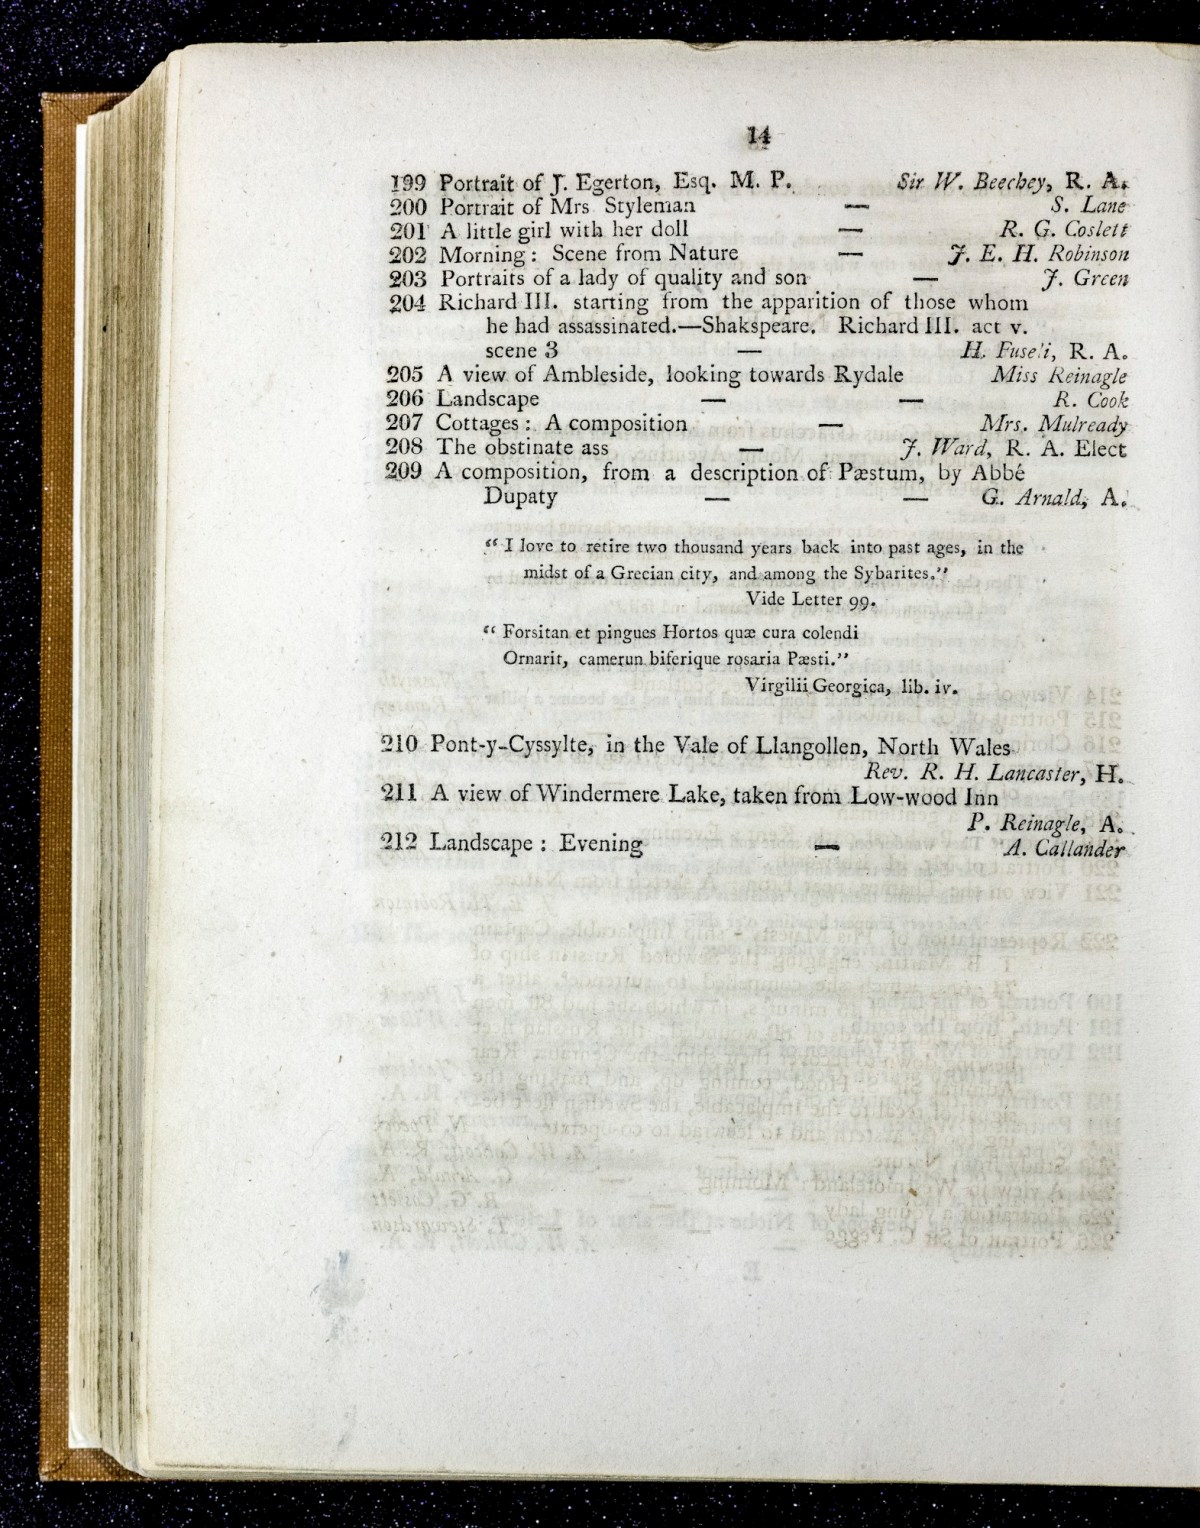 14
199 Portrait of J. Egerton, Esq. M. P. Sir W. Beechey, R. A.
200 Portrait of Mrs Styleman — S. Lane
201 A little girl with her doll — R. G. Coslett
202 Morning: Scene from Nature — J. E. H. Robinson
203 Portraits of a lady of quality and son — J. Green
204 Richard III. starting from the apparition of those whom
he had assassinated.—Shakspeare. Richard III. act v.
scene 3 — H. Fuseli, R. A.
205 A view of Ambleside, looking towards Rydale Miss Reinagle
206 Landscape — — R. Cook
207 Cottages: A composition — Mrs. Mulready
208 The obstinate ass — J. Ward, R. A. Elect
209 A composition, from a description of Pæstum, by Abbé
Dupaty — — G. Arnald, A.
“ I love to retire two thousand years back into past ages, in the
midst of a Grecian city, and among the Sybarites.”
Vide Letter 99.
“ Forsitan et pingues Hortos quæ cura colendi
Ornarit, camerun biferique rosaria Pæsti.”
Virgilii Georgica, lib. iv.
210 Pont-y-Cyssylte, in the Vale of Llangollen, North Wales
Rev. R. H. Lancaster, H.
211 A view of Windermere Lake, taken from Low-wood Inn
P. Reinagle, A.
212 Landscape : Evening — A. Callander